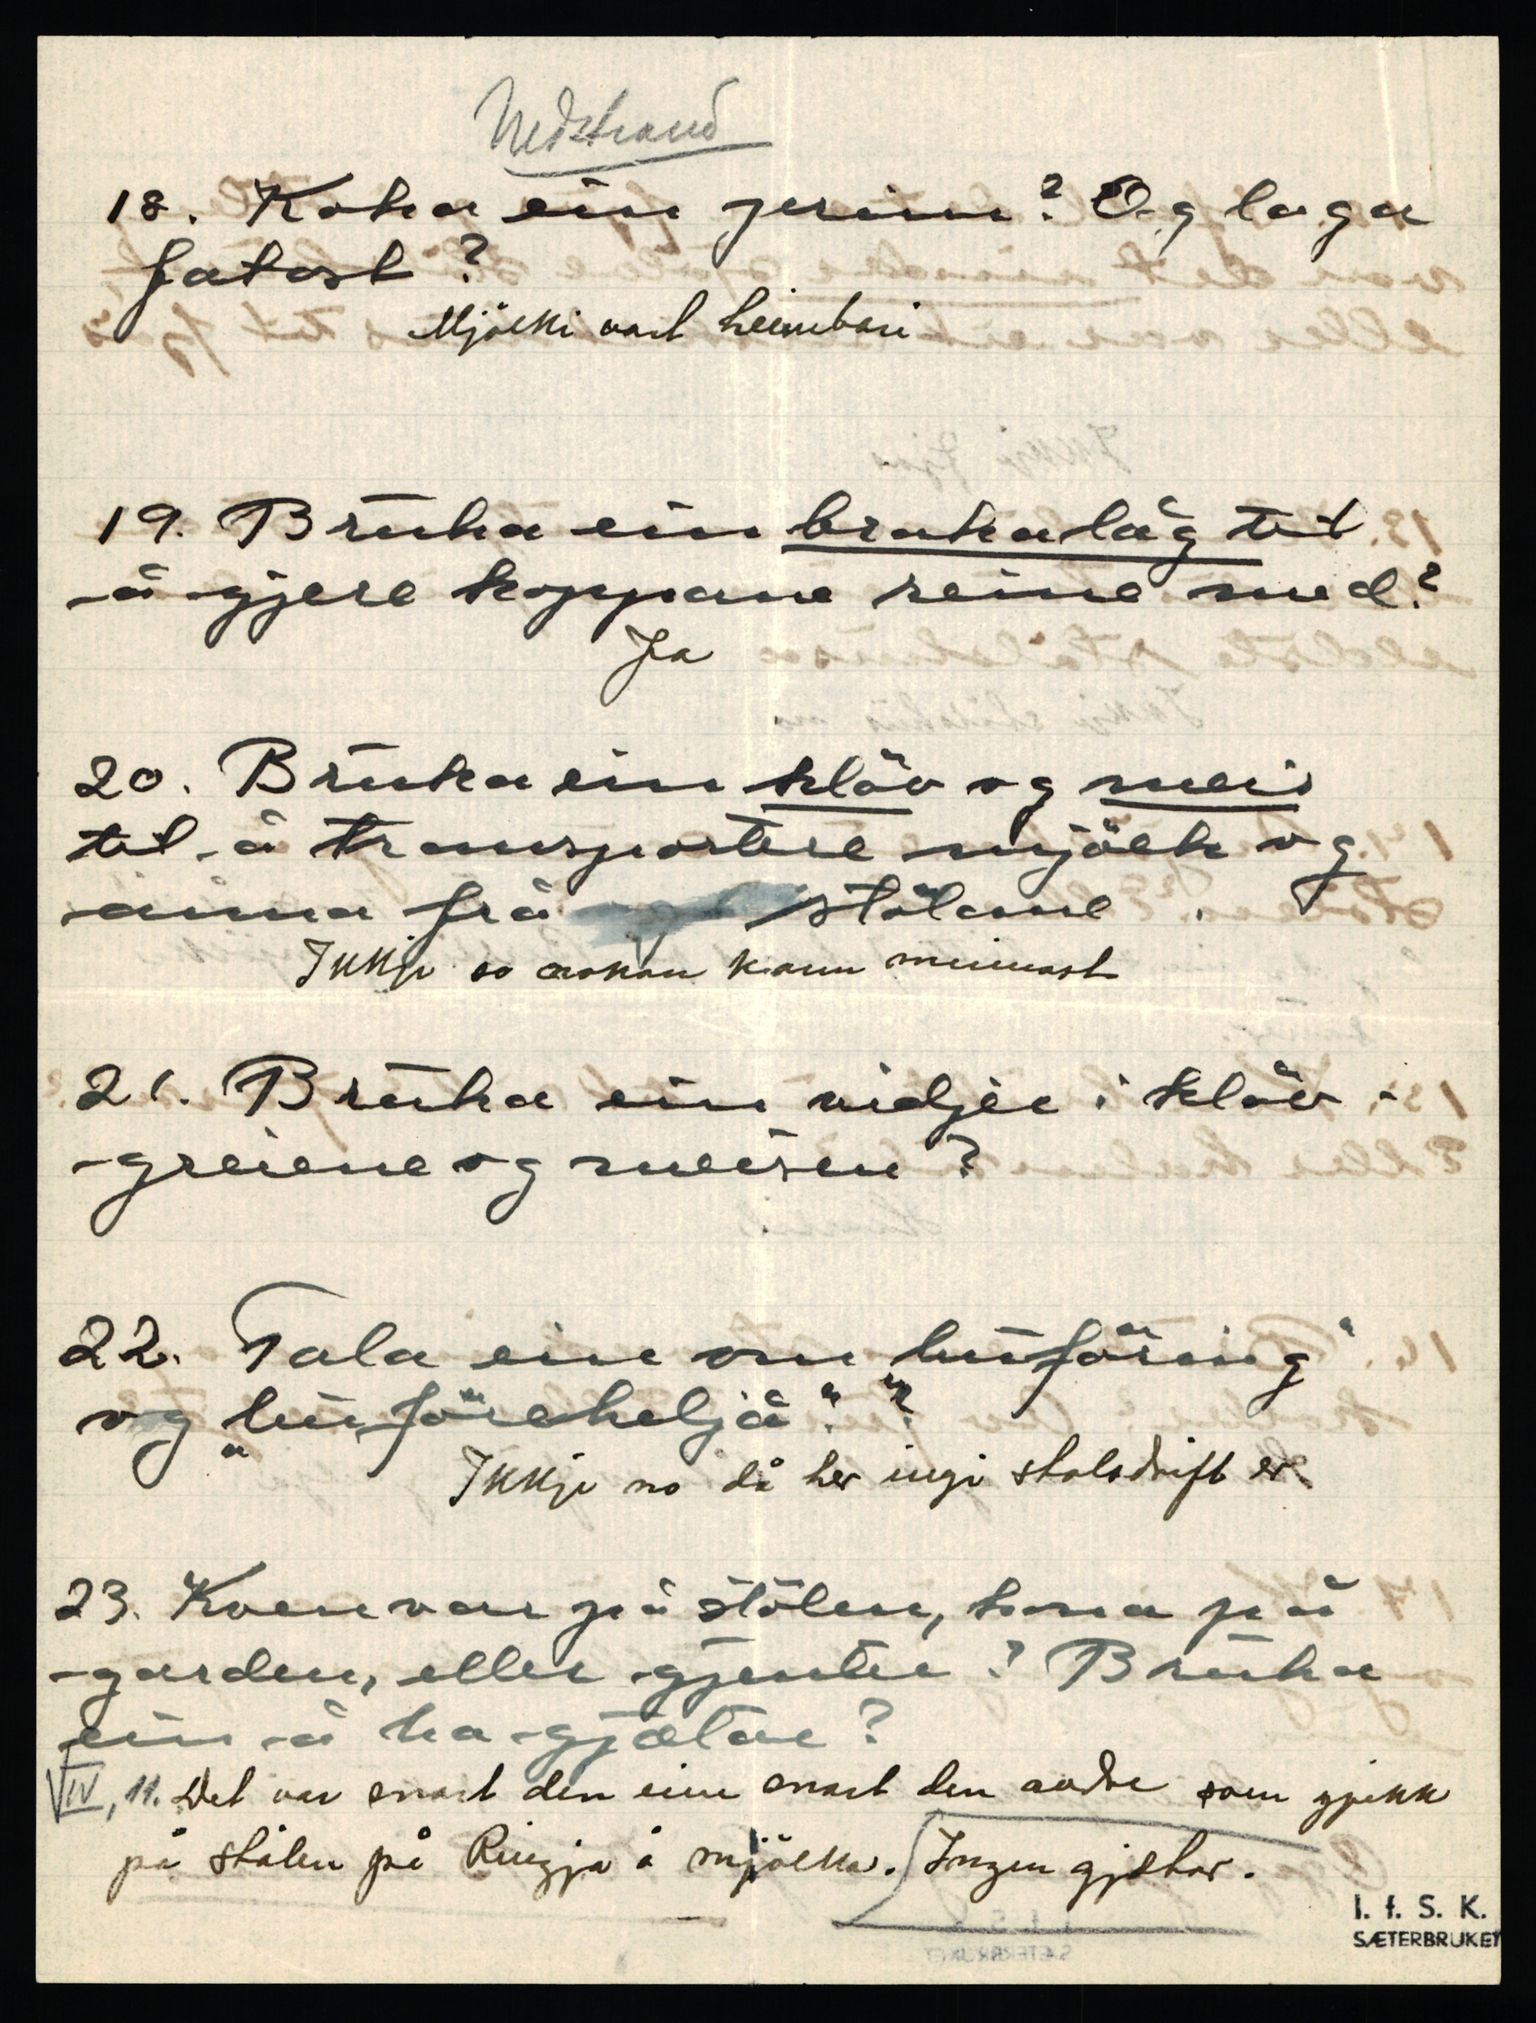 Nedstrand
18. Koka ein prim? Og laga
fatost?
Mjölki vart heimbori
19. Bruka ein brakalåg til
å gjere koppane reine med?
Ja
20. Bruka ein klöv og meis
til å transportere mjölk og
anna frå stölane.
Ikkje so nokon kann minnast
21. Bruka ein vidjer i klöv-
greiene og meisen?
22. Tala ein om "buföring"
og "buförehelja"?
Ikkje no då her ingi stolsdrift er.
23. Kven var på stölen, kona på
garden, eller gjenter? Bruka
ein å ha gjætar?
IV, 11. Det var snart den eine snart den andre som gjekk
på stölen på Ringja å mjölka. Ingen gjetar.
I. f. S. K.
SÆTERBRUKET